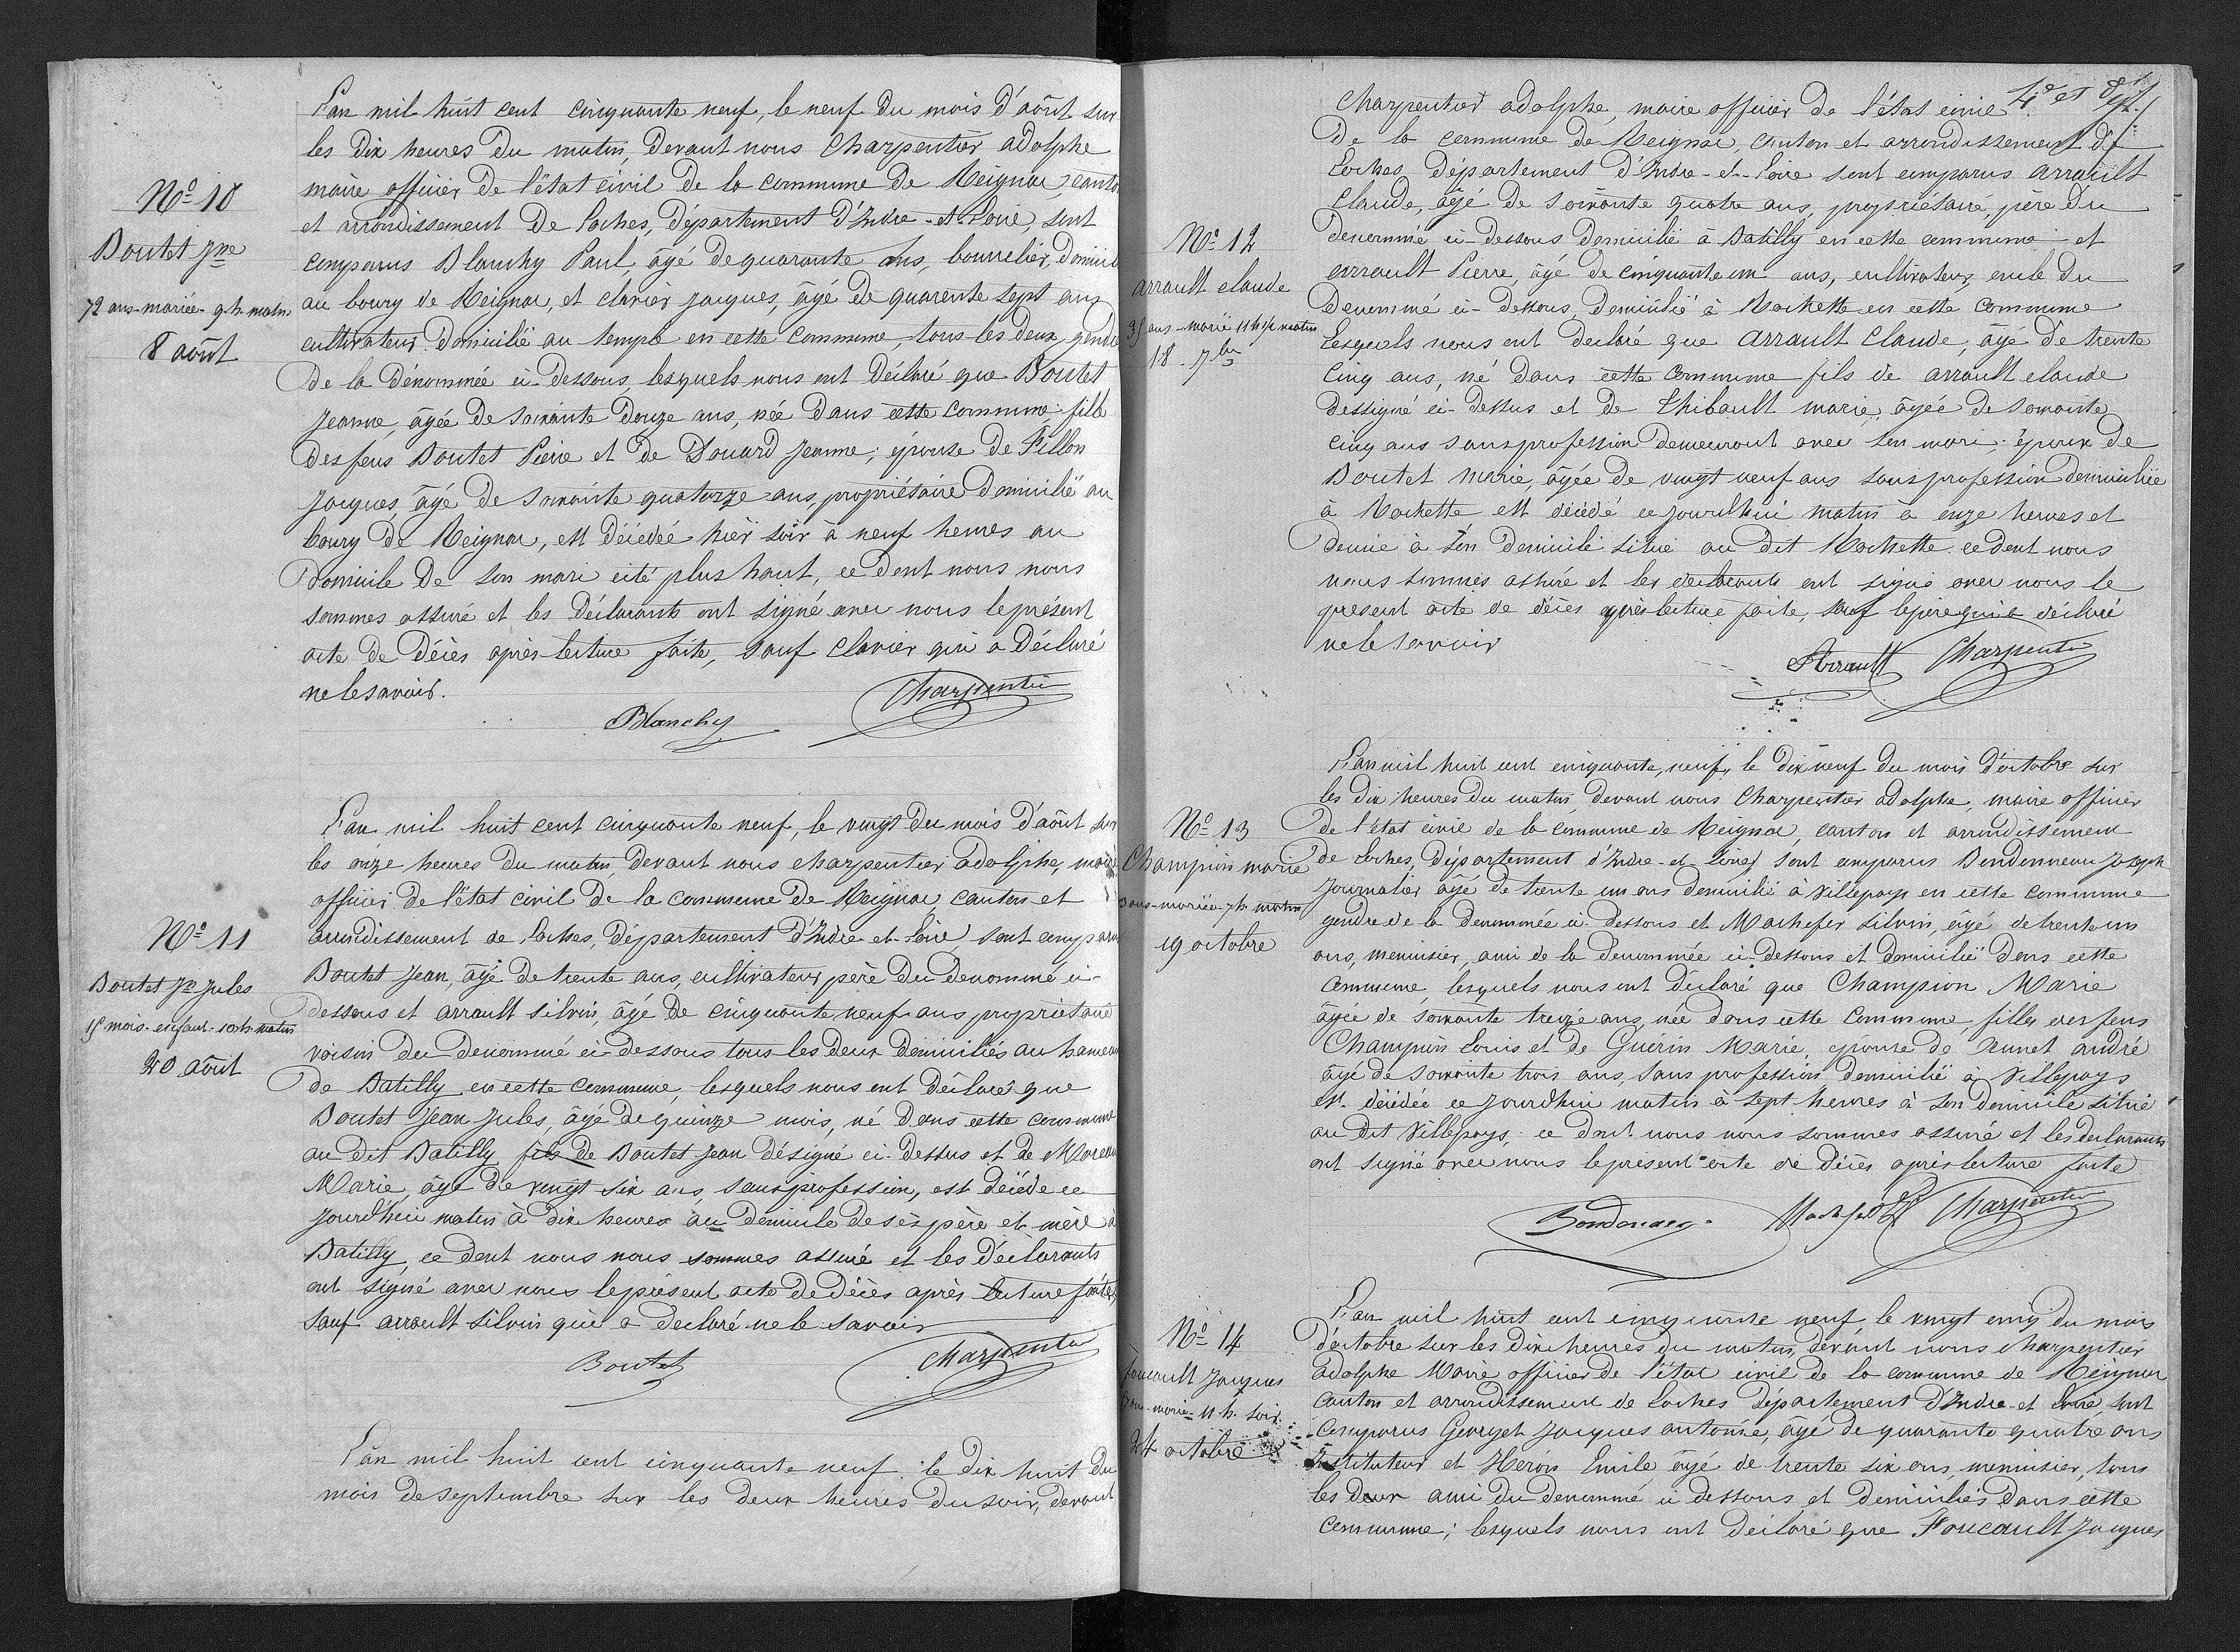 L'an mil huit cent cinquante neuf, le neuf du mois d'août sur
les dix heures du matin, devant nous Charpentier adolphe
maire officier de l'état civil de la commune de Reignac, canto
et arrondissement de Loches, département d'Indre-et-Loire, sont
comparus Blanchy Paul, âgé de quarante ans, bourrelier, domicil
au bourg de Reignac, et clavier jacques, âgé de quarente sept ans
cultivateur domicilié au temple en cette commune tous les deux gendre
de la dénommée ci-dessous, lesquels nous ont déclaré que Boutet
jeanne, âgée de soixante douze ans, née dans cette commune fille
des feus Boutet Pierre et de Douard jeanne; épouse de Fillon
jacques, âgé de soixante quatorze ans, propriétaire domicilié au
bourg de Reignac, est décédée hier soir à neuf heures au
domicile de son mari cité plus haut, ce dont nous nous
sommes assuré et les déclarants ont signé avec nous le présent
acte de décès après lecture faite, sauf clavier qui a déclaré
ne le savoir.
Blanchy
Charpentier
Nº 10
Boutet Jne
72 ans - mariée - 9 h. matin
8 août
L'an mil huit cent cinquante neuf, le vingt du mois d'août sur
les onze heures du matin, devant nous charpentier adolphe, maire
officier de l'état civil de la commune de Reignac, canton et
arrondissement de Loches, département d'Indre-et-Loire, sont comparus
Boutet jean, âgé de trente ans, cultivateur, père du denommé ci-
dessous et arrault silvin, âgé de cinquante neuf ans propriétaire
voisin du denommé ci-dessous tous les deux domiciliés au hameau
de Batilly en cette commune, lesquels nous ont déclaré que
Boutet jean jules, âgé de quinze mois, né dans cette commune
au dit Batilly fils de Boutet jean désigné ci-dessus et de Moreau
Marie, âgé de vingt six ans, sans profession, est décédé ce
jourd'hui matin à dix heures au domicile de ses père et mère a
Batilly, ce dont nous nous sommes assuré et les déclarants
ont signé avec nous le présent acte de décès après lecture faite,
sauf arrault silvin qui a declaré ne le savoir
Boutet
Charpentier
Nº 11
Boutet Jn Jules
15 mois - enfant - 10 h. matin
20 août
L'an mil huit cent cinquante neuf le dix huit du
mois de septembre sur les deux heures du soir, devant
Charpentier adolphe, maire officier de l'état civil
de la commune de Reignac, canton et arrondissement de
Loches, département d'Indre-et-Loire sont comparus arrault
Claude, âgé de soixante quatre ans, propriétaire, père du
denommé ci-dessous domicilié à Batilly en cette commune et
arrault Pierre, âgé de cinquante un ans, cultivateur, oncle du
denommé ci-dessous, domicilié à Rochette en cette commune
Lesquels nous ont declaré que arrault Claude, âgé de trente
cinq ans, né dans cette commune fils de arrault claude
dessigné ci-dessus et de Thibault marie, âgée de soixante
cinq ans sans profession demeurant avec son mari; époux de
Boutet marie, âgée de vingt neuf ans sans profession domiciliée
à Rochette est décédé ce jourd'hui matin à onze heures et
demie à son domicile situé au dit Rochette ce dont nous
nous sommes assuré et les declarants ont signé avec nous le
present acte de décès après lecture faite, sauf le père qui a déclaré
ne le savoir
Arrault
Charpentier
Nº 12
arrault claude
35 ans - marié 11 h 1/2 matin
18 - 7bre
L'an mil huit cent cinquante, neuf, le dix neuf du mois d'octobre sur
les dix heures du matin, devant nous Charpentier adolphe, maire officier
de l'état civil de la commune de Reignac, canton et arrondissement
de Loches, département d'Indre-et-Loire, sont comparus Bondonneau joseph
journalier âgé de trente un ans domicilié à Villepays en cette commune
gendre de la denommée ci-dessous et Machefer silvin, âgé de trente un
ans, menuisier, ami de la dénommée ci-dessous et domicilié dans cette
commune, lesquels nous ont déclaré que Champion Marie
âgée de soixante treize ans, née dans cette commune, filles des feus
Champion Louis et de Guerin Marie, epouse de Aunet andré
âgé de soixante trois ans, sans profession domicilié à Villepays
est décédée ce jourdhui matin à sept heures à son domicile situé
au dit Villepays; ce dont nous nous sommes assuré et les declarants
ont signé avec nous le présent acte de décès après lecture faite
Machefer
Charpentier
Nº 13
Champion marie
ans - mariée - 7 h. matin
19 octobre
L'an mil huit cent cinquante neuf le vingt cinq du mois
d'octobre sur les dix heures du matin, devant nous charpentier
adolphe Maire officier de l'état civil de la commune de Reignac
canton et arrondissement de Loches département d'Indre-et-Loire, sont
comparus Georget jacques antoine, âgé de quarante quatre ans
Instituteur et Heron Emile âgé de trente six ans, menuisier, tous
les deux ami du denommé ci dessous et domiciliés dans cette
commune; lesquels nous ont declaré que Foucault jacques
Nº 14
foucault jacques
ans - marié - 11 h. soir
24 octobre